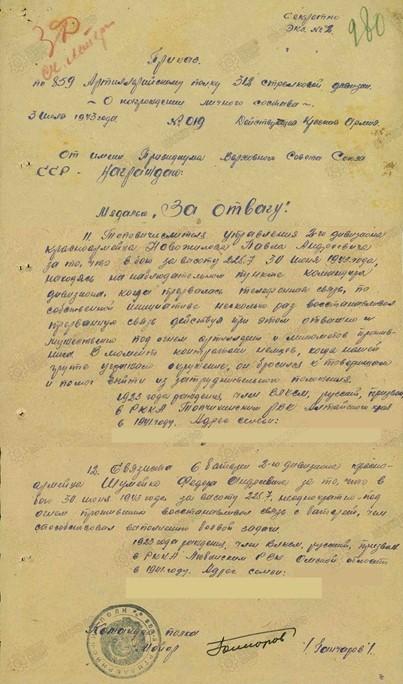 Секретно
Экз. № 2
280
Приказ
по 859 Артиллерийскому полку 312 стрелковой дивизии
~ О награждении личного состава ~
3 июля 1943 года № 019 Действующая Красная Армия.
От имени Президиума Верховного Совета Союза
ССР - Награждаю:
Медалью „За отвагу"
11. Топовычислителя управления 2-го дивизиона
красноармейца Новожилова Павла Андреевича
за то, что в бою за высоту 226.7 30 июня 1943 года,
находясь на наблюдательном пункте командира
дивизиона, когда прервалась телефонная связь, по
собственной инициативе несколько раз восстанавливал
прерванную связь действуя при этом отважно и
мужественно под огнем артиллерии и минометов против-
ника. В момент контратаки немцев, когда нашей
группе угрожало окружение, он бросился к товарищам
и помог выйти из затруднительного положения.
1923 года рождения, член ВЛКСМ, русский, призван
в РККА Топчихинским РВК Алтайского края
в 1941 году. Адрес семьи:
12. Связиста 6 батареи 2-го дивизиона красно-
армейца Шумейко Федора Андреевича за то, что в
бою 30 июня 1943 года за высоту 226.7, неоднократно под
огнем противника восстанавливал связь с батареей, чем
способствовал выполнению боевой задачи.
1923 года рождения, член ВЛКСМ, русский, призван
в РККА Любинским РВК Омской области
в 1941 году. Адрес семьи:
Командир полка
Майор /Гончаров/.